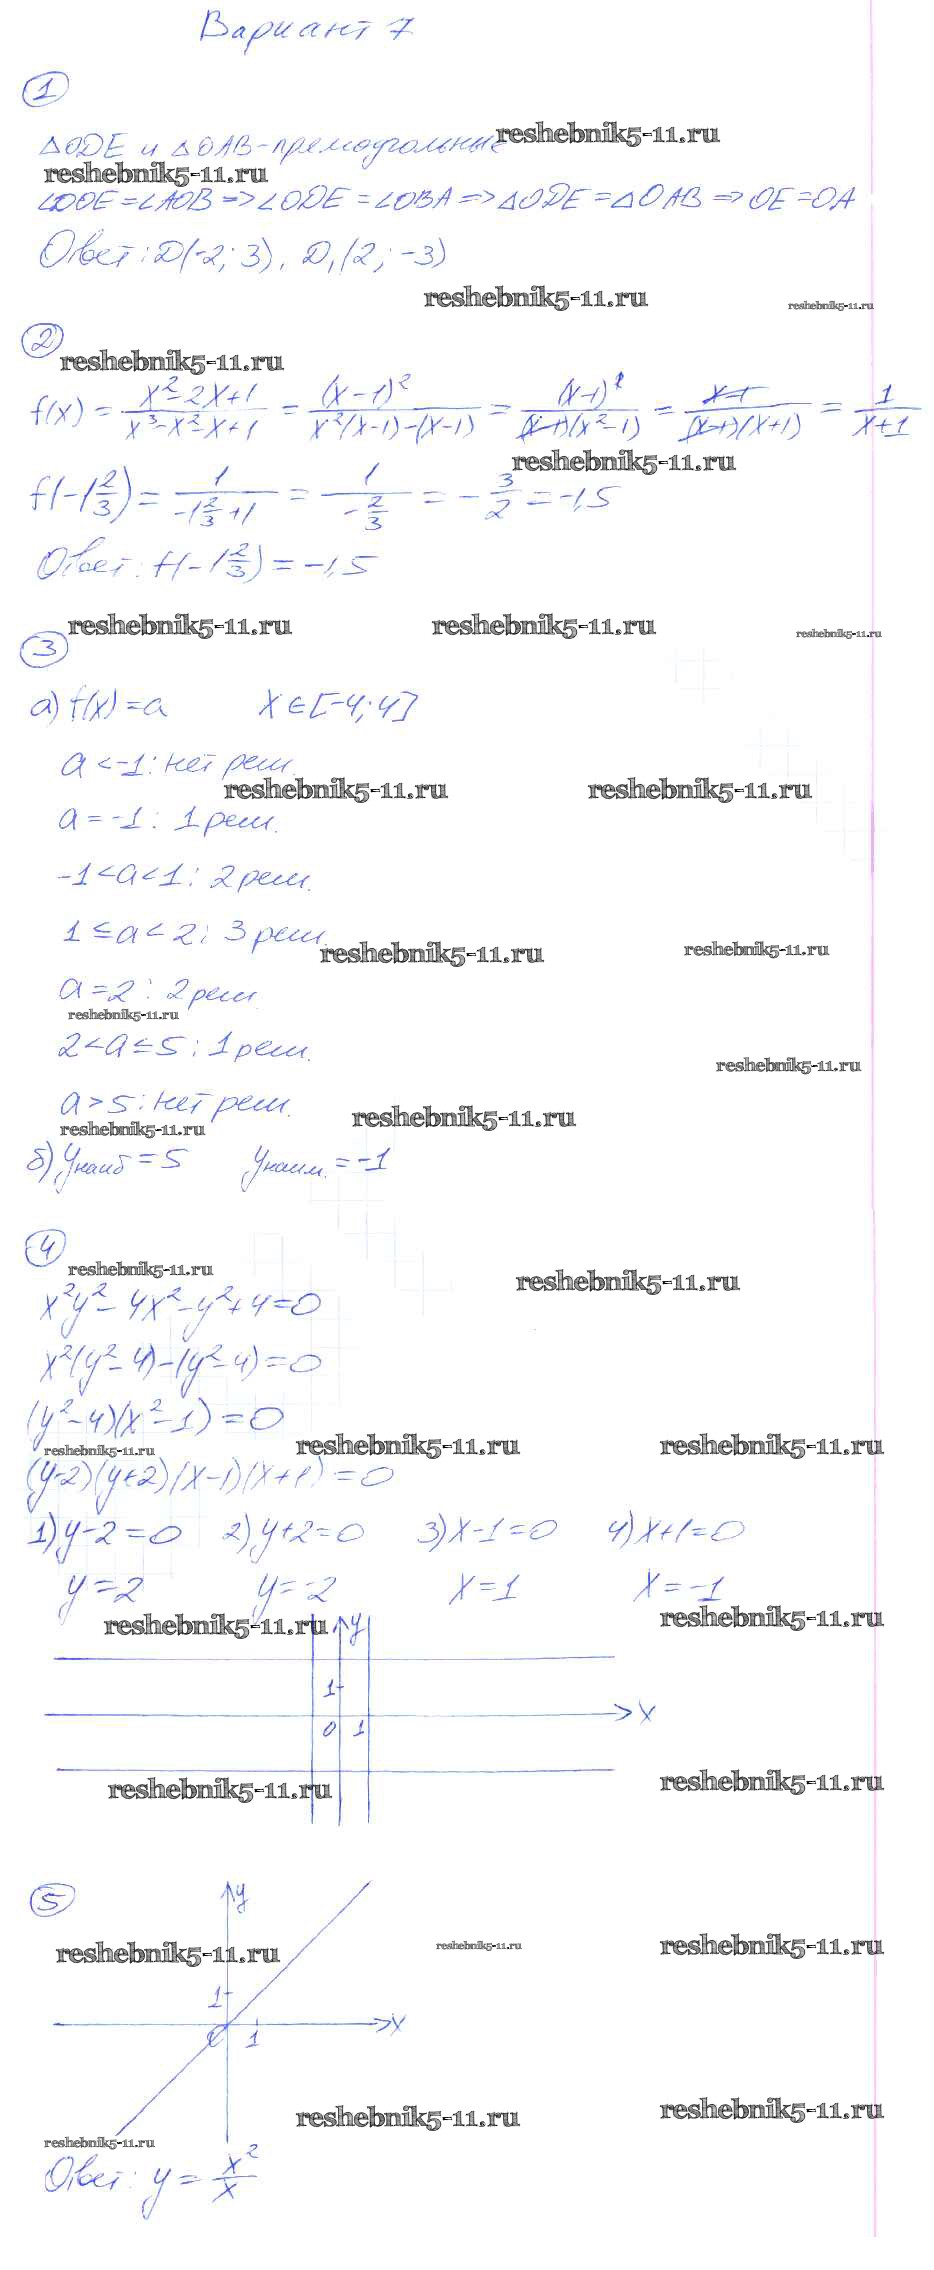 Вариант 7
1
△ODE и △OAB - прямоугольные
reshebnik5-11.ru
reshebnik5-11.ru
∠DOE = ∠AOB => ∠ODE = ∠OBA => △ODE = △OAB => OE = OA
Ответ: D(-2; 3), D₁(2; -3)
reshebnik5-11.ru
reshebnik5-11.ru
2
reshebnik5-11.ru
f(x) = (x² - 2x + 1)/(x³ - x² - x + 1) = (x - 1)²/(x²(x-1) - (x-1)) = (x-1)²/((x-1)(x² - 1)) = (x-1)/((x-1)(x+1)) = 1/(x+1)
reshebnik5-11.ru
f(-1 2/3) = 1/(-1 2/3 + 1) = 1/(-2/3) = -3/2 = -1,5
Ответ: f(-1 2/3) = -1,5
reshebnik5-11.ru reshebnik5-11.ru
reshebnik5-11.ru
3
а) f(x) = a x ∈ [-4; 4]
a < -1: нет реш.
reshebnik5-11.ru reshebnik5-11.ru
a = -1: 1 реш.
-1 < a < 1: 2 реш.
1 ≤ a < 2: 3 реш.
reshebnik5-11.ru reshebnik5-11.ru
a = 2: 2 реш.
reshebnik5-11.ru
2 < a ≤ 5: 1 реш.
reshebnik5-11.ru
a > 5: нет реш.
reshebnik5-11.ru
reshebnik5-11.ru
б) yнаиб = 5 yнаим. = -1
4
reshebnik5-11.ru
reshebnik5-11.ru
x²y² - 4x² - y² + 4 = 0
x²(y² - 4) - (y² - 4) = 0
(y² - 4)(x² - 1) = 0
reshebnik5-11.ru reshebnik5-11.ru reshebnik5-11.ru
(y-2)(y+2)(x-1)(x+1) = 0
1) y - 2 = 0 2) y + 2 = 0 3) x - 1 = 0 4) x + 1 = 0
y = 2 y = -2 x = 1 x = -1
reshebnik5-11.ru reshebnik5-11.ru
y
1
x
0 1
reshebnik5-11.ru reshebnik5-11.ru
5
y
reshebnik5-11.ru reshebnik5-11.ru reshebnik5-11.ru
1
x
1
reshebnik5-11.ru reshebnik5-11.ru
reshebnik5-11.ru
Ответ: y = x²/x